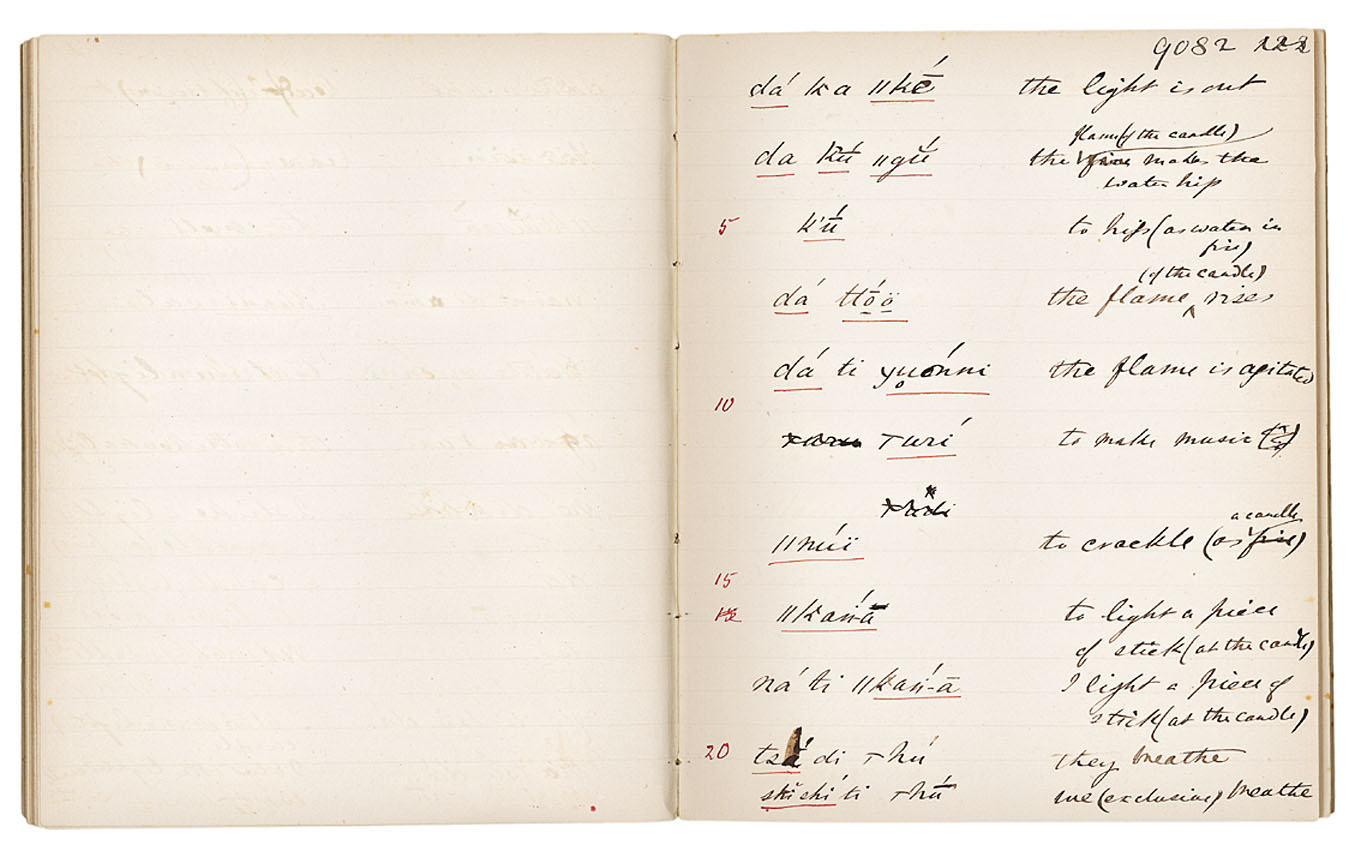 9082
dá ka ǁkḗ the light is out
flame (of the candle)
da kú ǁgū́ the fire makes the
water hiss
5 k'ū́ to hiss (as water in
fire)
(of the candle)
dá tlṓö the flame ‸ rises
dá ti yuónni the flame is agitated
10
turí to make music
a candle
ǁnúï to crackle (as fire)
15
ǁkań-ā to light a piece
of stick (at the candle)
ná ti ǁkań-ā I light a piece of
stick (at the candle)
20 tsá di thú they breathe
shĭshí ti thū́ we (exclusive) breathe